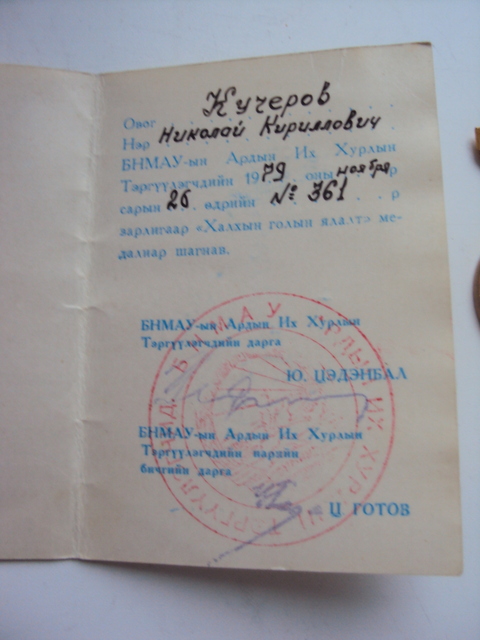 Овог Кучеров
Нэр Николай Кириллович
БНМАУ-ын Ардын Их Хурлын
Тэргүүлэгчдийн 1979 оны ноября р
сарын 26 өдрийн № 361 р
зарлигаар «Халхын голын ялалт» ме-
далиар шагнав.
БНМАУ-ын Ардын Их Хурлын
Тэргүүлэгчдийн дарга
Ю. ЦЭДЭНБАЛ
БНМАУ-ын Ардын Их Хурлын
Тэргүүлэгчдийн нарийн
бичгийн дарга
Ц ГОТОВ
БНМАУ АРДЫН ИХ ХУР